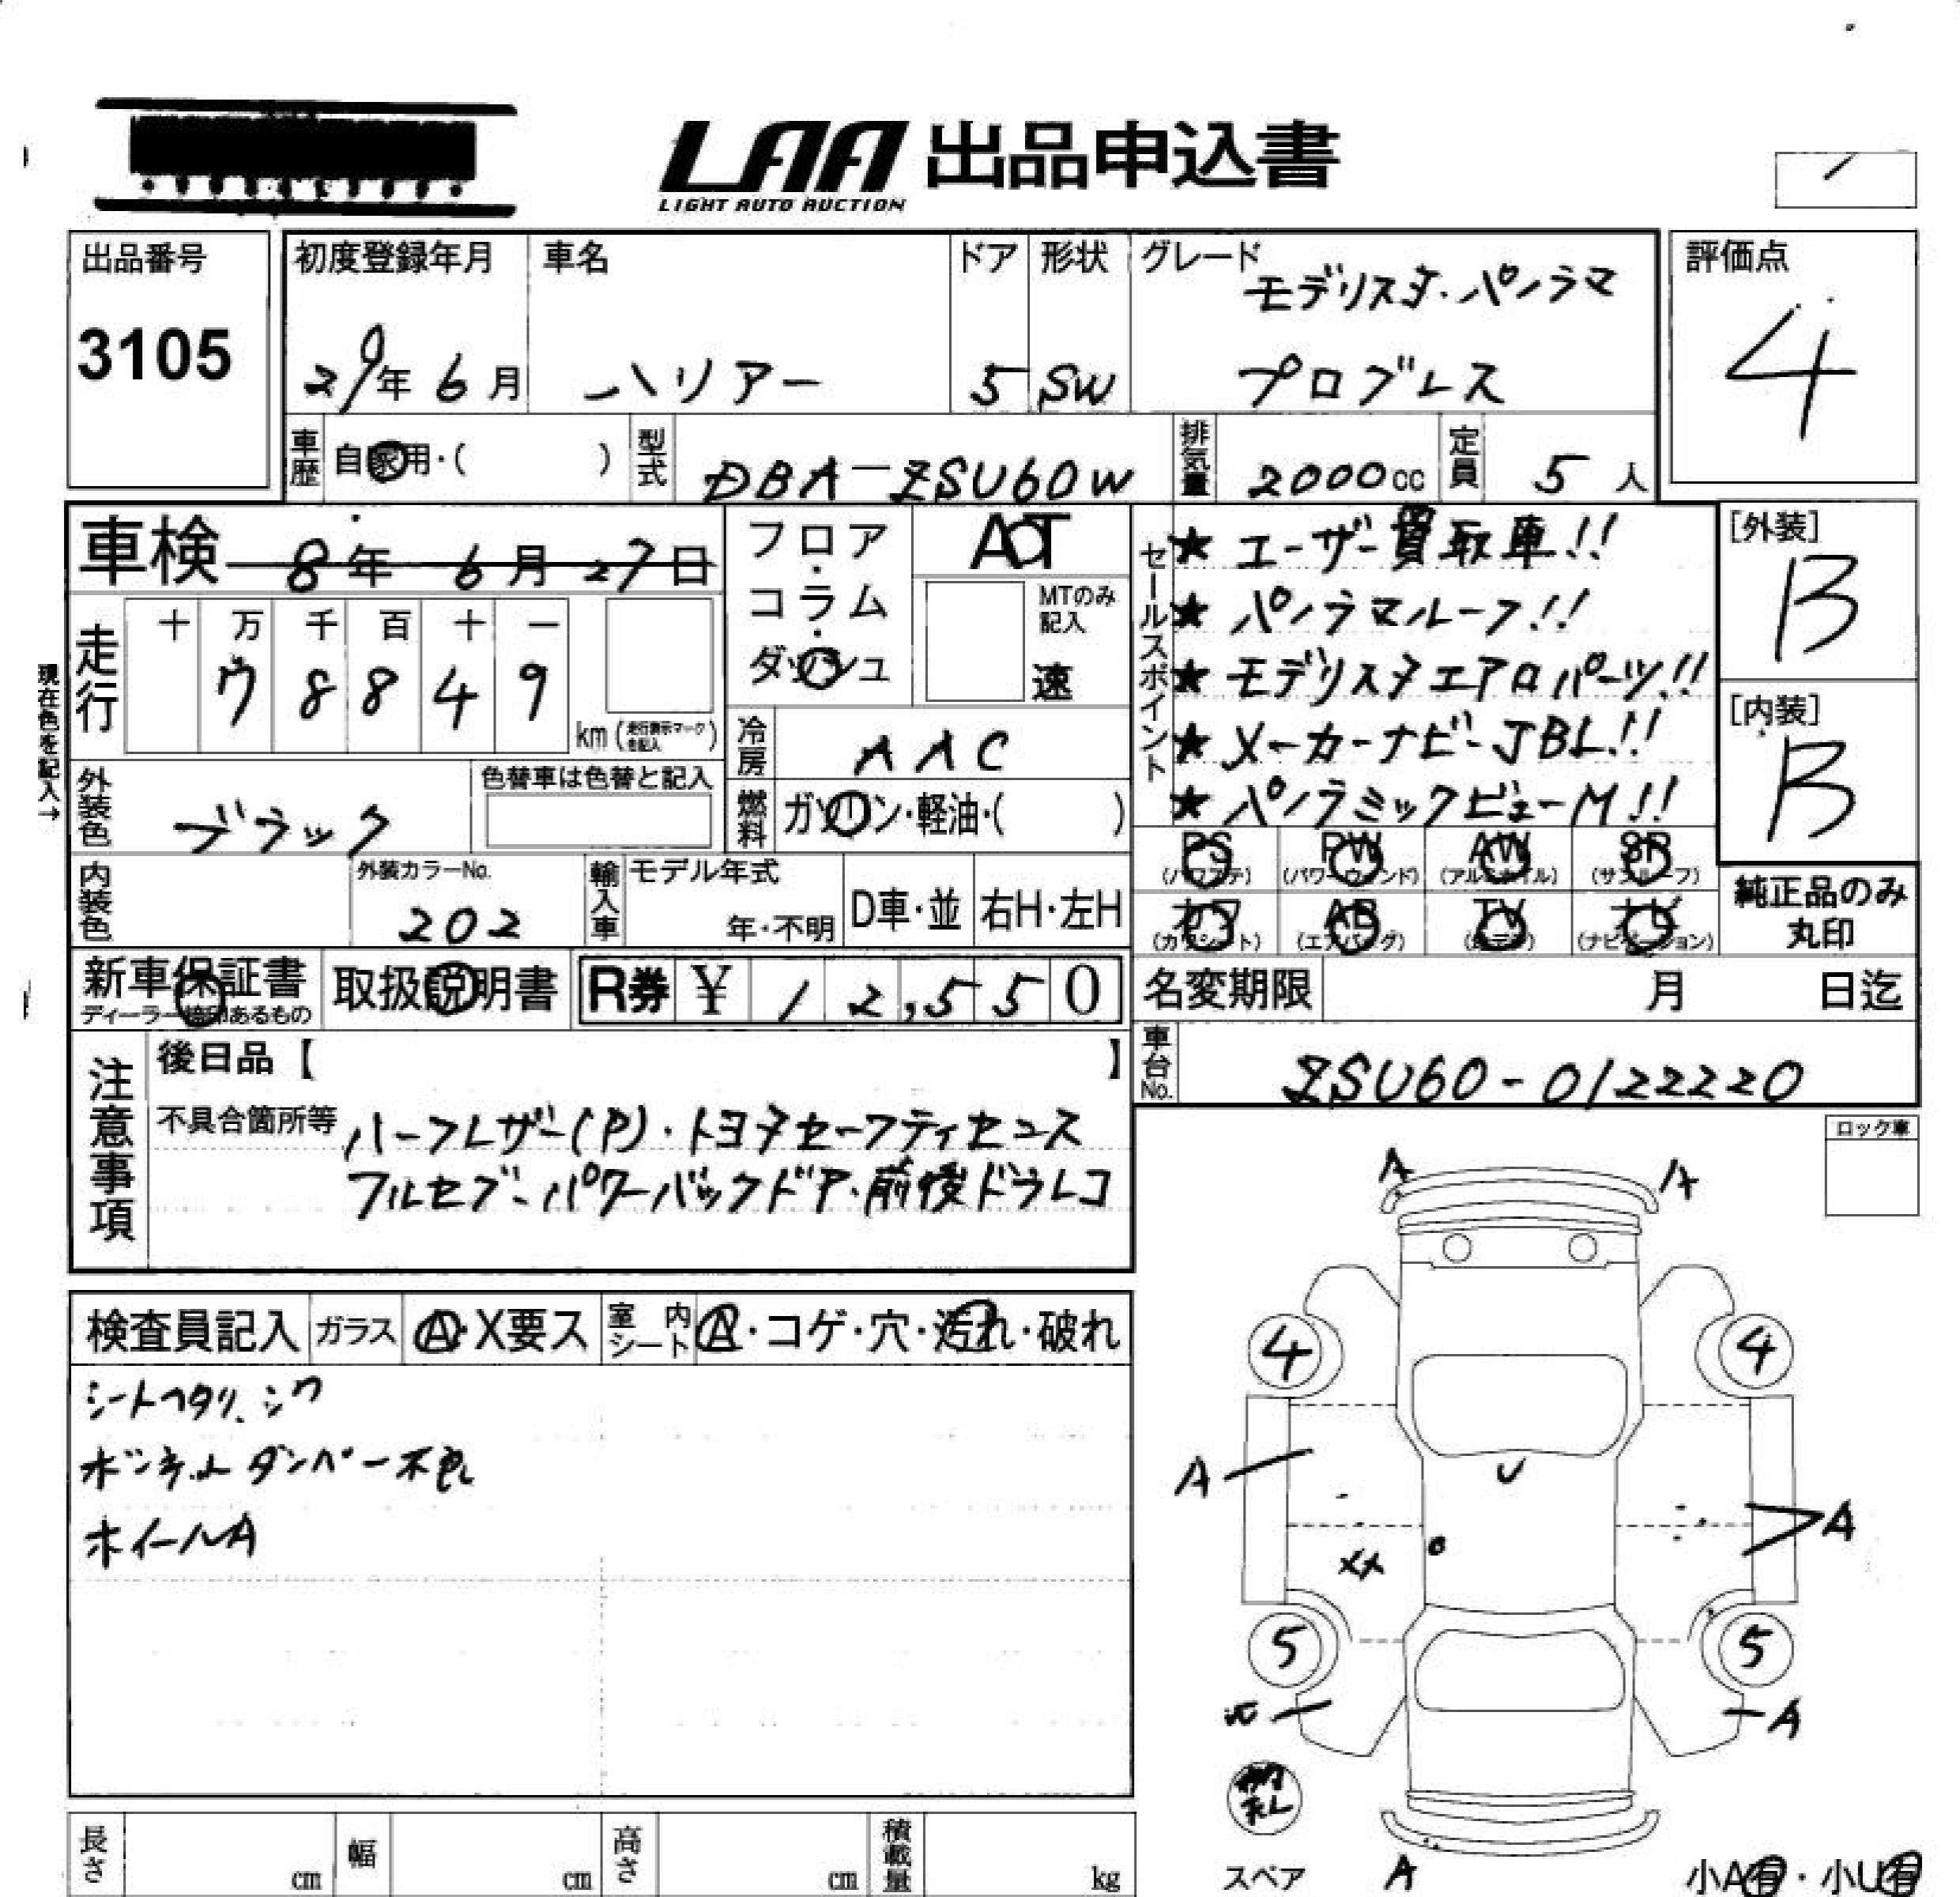 LAA 出品申込書
LIGHT AUTO AUCTION
出品番号
3105
初度登録年月
29年 6月
車名
ハリアー
ドア
5
形状
SW
グレード
モデリスタ・パノラマ
プログレス
評価点
4
車歴 自家用・( )
型式 DBA-ZSU60W
排気量 2000cc
定員 5人
車検 8年 6月 27日
走行
十 万 千 百 十 一
7 8 8 4 9
km (走行表示マークを記入)
現在色を記入→
フロア・コラム・ダッシュ
AT
MTのみ記入
速
冷房 AAC
燃料 ガソリン・軽油・( )
セールスポイント
★ユーザー買取車!!
★パノラマルーフ!!
★モデリスタエアロパーツ!!
★メーカーナビ-JBL!!
★パノラミックビューM!!
[外装]
B
[内装]
B
外装色 ブラック
色替車は色替と記入
内装色
外装カラーNo.
202
輸入車 モデル年式
年・不明
D車・並
右H・左H
PS (パワステ)
PW (パワーウィンド)
AW (アルミホイル)
SR (サンルーフ)
カワ (カワシート)
AB (エアバッグ)
TV
ナビ (ナビゲーション)
純正品のみ
丸印
新車保証書
ディーラー捺印あるもの
取扱説明書
R券 ¥ 12,550
名変期限 月 日迄
車台No. ZSU60-0122220
注意事項
後日品【 】
不具合箇所等 ハーフレザー(P)・トヨタセーフティセンス
フルセグ-パワーバックドア・前後ドラレコ
ロック車
検査員記入
ガラス A・X要ス
室内シート A・コゲ・穴・汚れ・破れ
シートヘタリ、シワ
ボンネットダンパー不良
ホイールA
A A
4 4
A
U
A
XX
5 5
A
A
スペア
小A有・小U有
長さ cm
幅 cm
高さ cm
積載量 kg